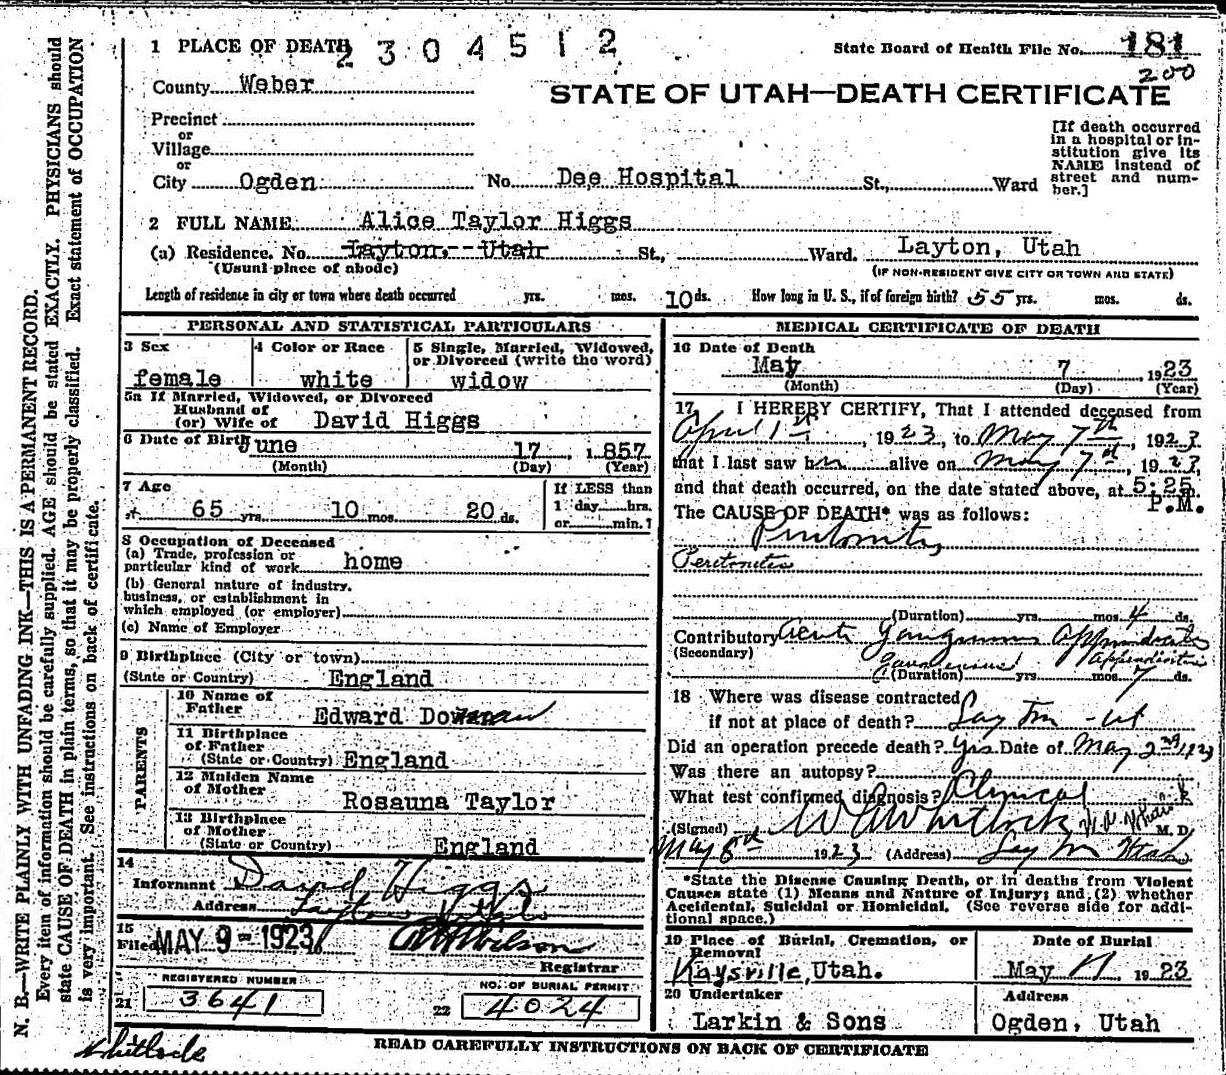 1 PLACE OF DEATH 2304512 State Board of Health File No. 181
200
County Weber
STATE OF UTAH—DEATH CERTIFICATE
Precinct
or
Village
or
City Ogden No. Dee Hospital St., Ward
[If death occurred
in a hospital or in-
stitution give its
NAME instead of
street and num-
ber.]
2 FULL NAME Alice Taylor Higgs
(a) Residence. No. Layton, Utah St., Ward. Layton, Utah
(Usual place of abode) (IF NON-RESIDENT GIVE CITY OR TOWN AND STATE)
Length of residence in city or town where death occurred yrs. mos. 10 ds. How long in U. S., if of foreign birth? 55 yrs. mos. ds.
PERSONAL AND STATISTICAL PARTICULARS
3 Sex 4 Color or Race 5 Single, Married, Widowed,
or Divorced (write the word)
female white widow
5a If Married, Widowed, or Divorced
Husband of
(or) Wife of David Higgs
6 Date of Birth June 17 1857
(Month) (Day) (Year)
7 Age If LESS than
65 yrs. 10 mos. 20 ds. 1 day hrs.
or min.?
8 Occupation of Deceased
(a) Trade, profession or
particular kind of work home
(b) General nature of industry,
business, or establishment in
which employed (or employer)
(c) Name of Employer
9 Birthplace (City or town)
(State or Country) England
PARENTS
10 Name of
Father Edward
11 Birthplace
of Father
(State or Country) England
12 Maiden Name
of Mother Rosauna Taylor
13 Birthplace
of Mother
(State or Country) England
14
Informant David Higgs
Address Layton Utah
15
Filed MAY 9-1923 Wilson
Registrar
REGISTERED NUMBER NO. OF BURIAL PERMIT
21 3641 22 4024
MEDICAL CERTIFICATE OF DEATH
16 Date of Death
May 7, 1923
(Month) (Day) (Year)
17 I HEREBY CERTIFY, That I attended deceased from
April 1st, 1923, to May 7th, 1923,
that I last saw her alive on May 7th, 1923,
and that death occurred, on the date stated above, at 5:25 m.
P.M.
The CAUSE OF DEATH* was as follows:
Peritonitis
Peritonitis
(Duration) yrs. mos. 4 ds.
Contributory Acute Gangrenous Appendicitis
(Secondary) Gangrenous Appendicitis
(Duration) yrs. mos. 7 ds.
18 Where was disease contracted
if not at place of death? Layton - Ut
Did an operation precede death? Yes Date of May 2nd 1923
Was there an autopsy?
What test confirmed diagnosis? Clinical
(Signed) Whitlock M. D.
May 8th 1923 (Address) Layton Utah
*State the Disease Causing Death, or in deaths from Violent
Causes state (1) Means and Nature of Injury; and (2) whether
Accidental, Suicidal or Homicidal. (See reverse side for addi-
tional space.)
19 Place of Burial, Cremation, or Removal Date of Burial
Kaysville, Utah. May 11 1923
20 Undertaker Address
Larkin & Sons Ogden, Utah
READ CAREFULLY INSTRUCTIONS ON BACK OF CERTIFICATE
Whitlock
N. B.—WRITE PLAINLY WITH UNFADING INK—THIS IS A PERMANENT RECORD.
Every item of information should be carefully supplied. AGE should be stated EXACTLY. PHYSICIANS should
state CAUSE OF DEATH in plain terms, so that it may be properly classified. Exact statement of OCCUPATION
is very important. See instructions on back of certificate.